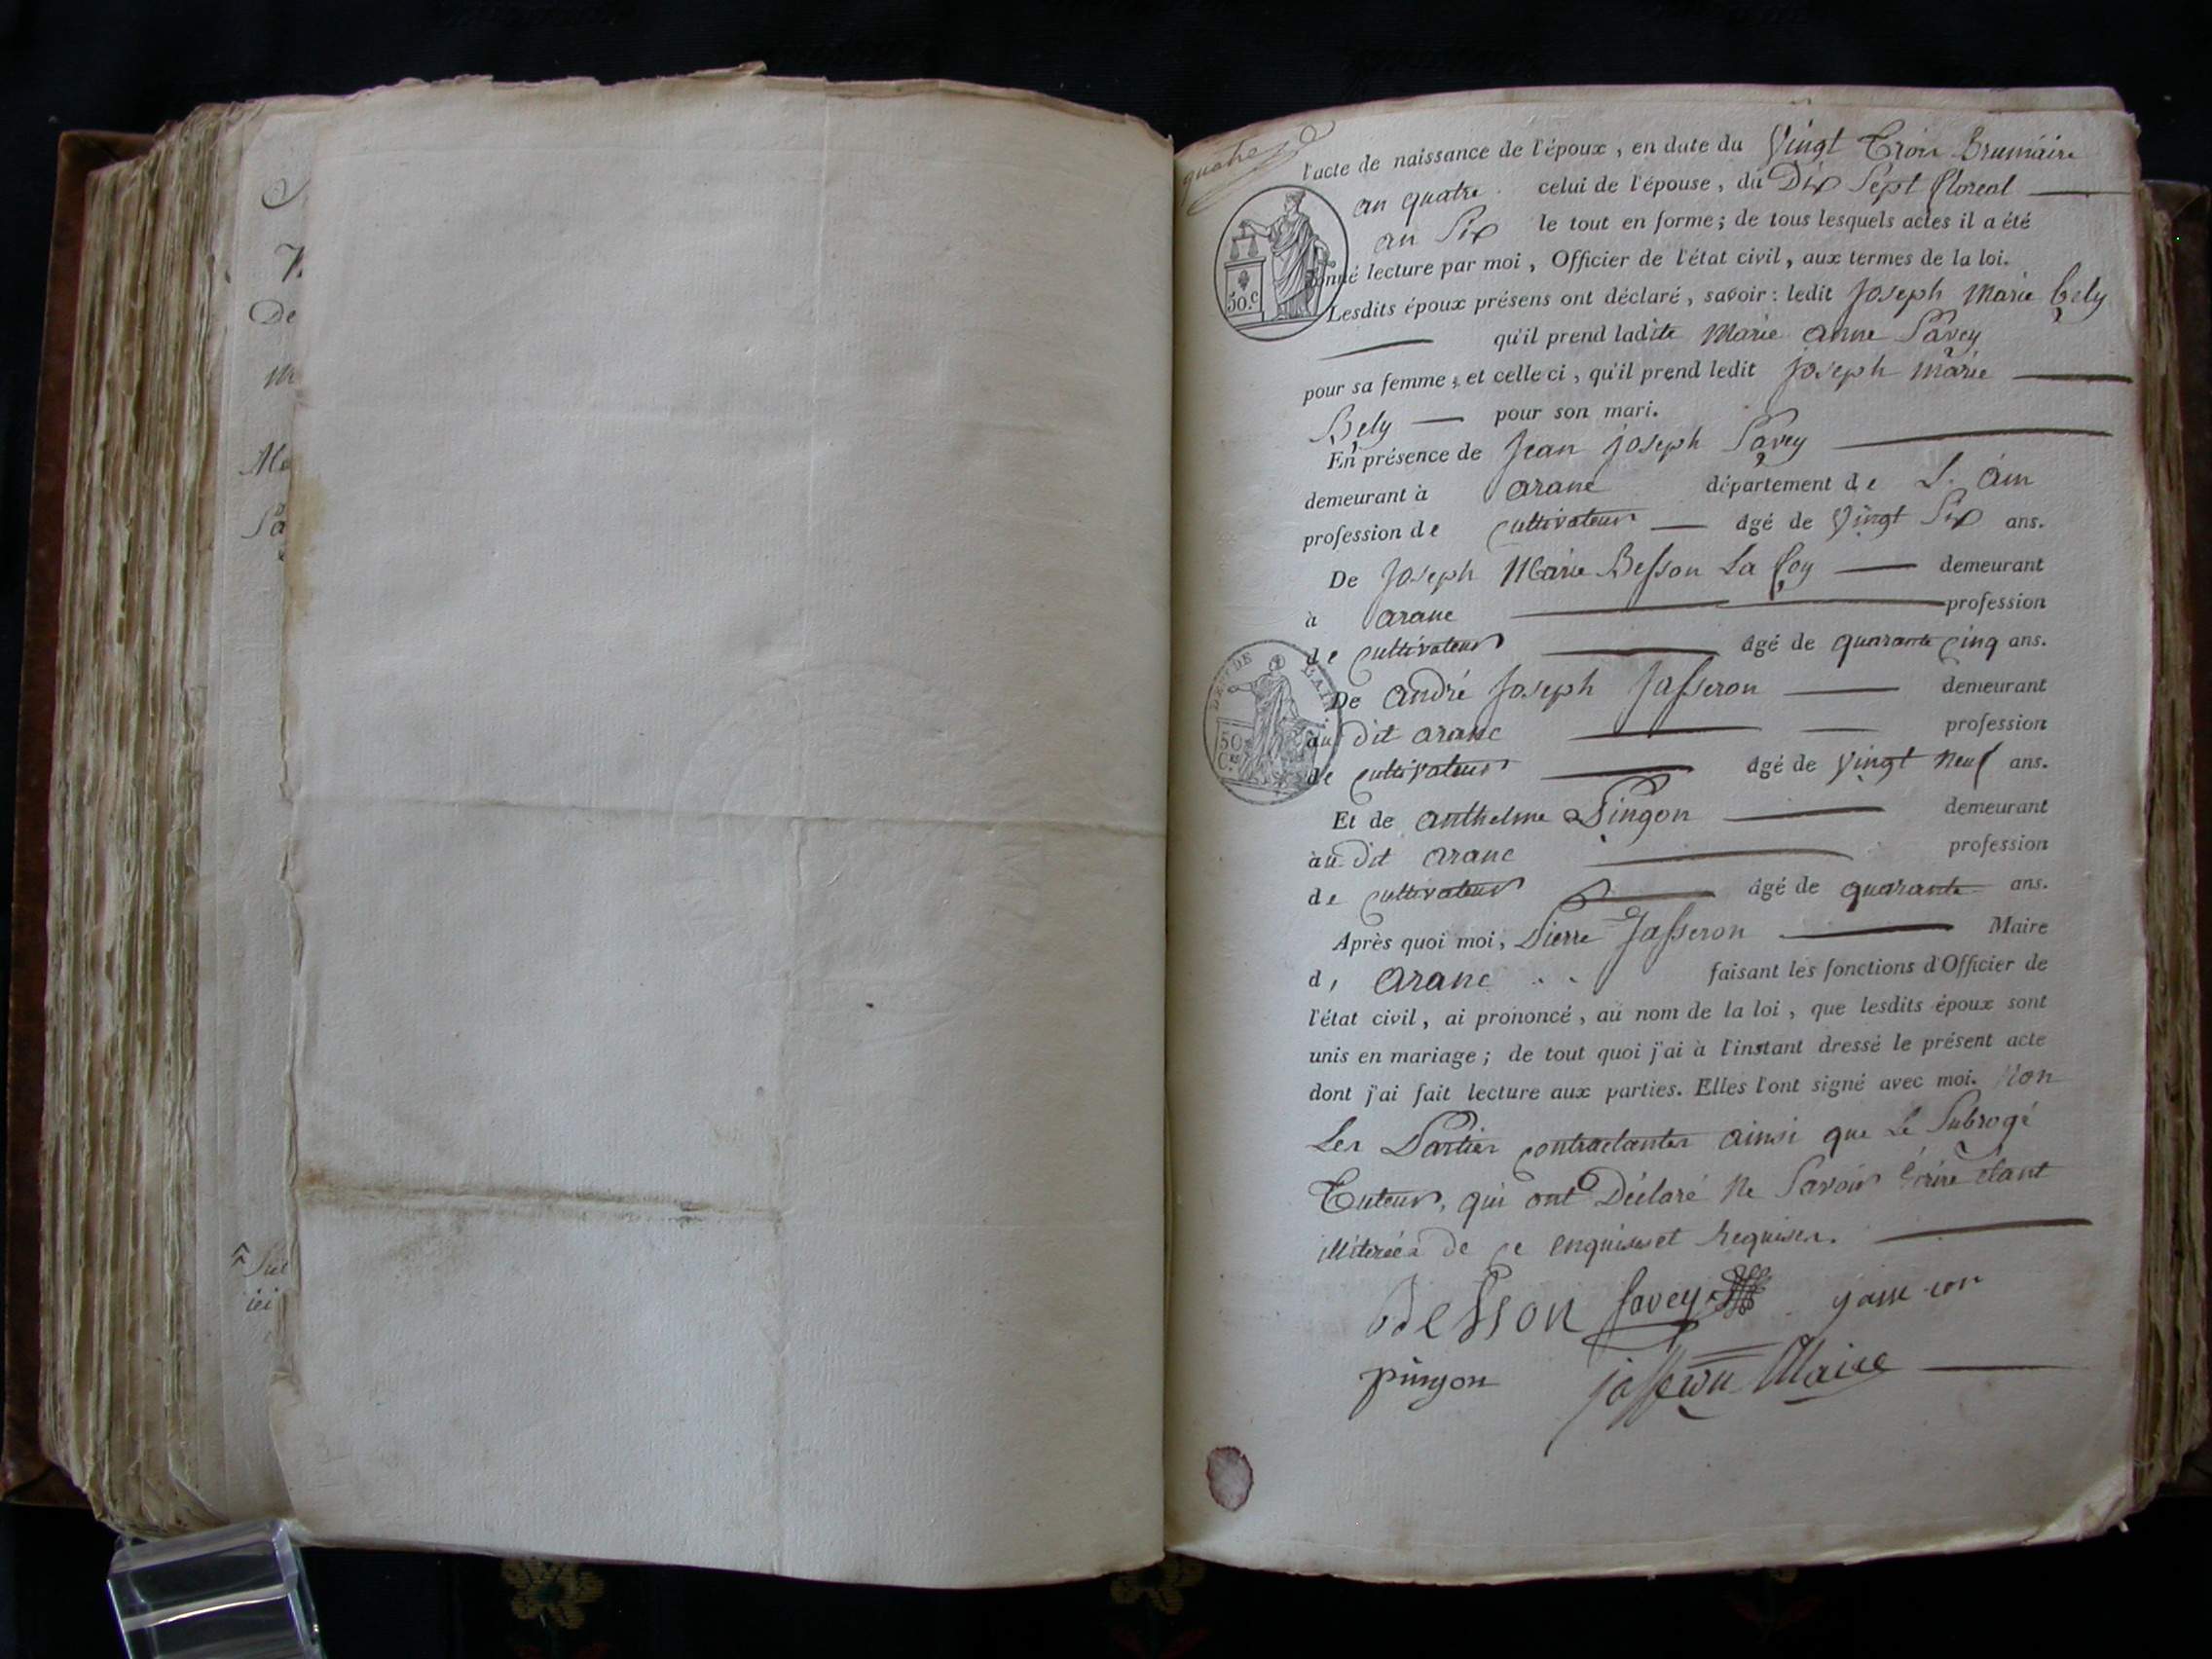 De
Ma
Sa
quatre
l'acte de naissance de l'époux, en date du Vingt Trois brumaire
an quatre celui de l'épouse, du Dix Sept floreal
an Six le tout en forme; de tous lesquels actes il a été
donné lecture par moi, Officier de l'état civil, aux termes de la loi.
30.c
Lesdits époux présens ont déclaré, savoir: ledit Joseph Marie bely
qu'il prend ladite Marie anne Savey
pour sa femme; et celle ci, qu'il prend ledit Joseph marie
Bely pour son mari.
En présence de Jean Joseph Savey
demeurant à arane département de L'ain
profession de cultivateur agé de Vingt Six ans.
De Joseph Marie Besson La foy demeurant
à arane profession
de cultivateur agé de quarante cinq ans.
DEPT DE L'AIN
50 C.
De andré Joseph Jasseron demeurant
au dit arane profession
de cultivateur agé de Vingt neuf ans.
Et de anthelme Pingon demeurant
au dit arane profession
de cultivateur agé de quarante ans.
Après quoi moi, Pierre Jasseron Maire
d, arane faisant les fonctions d'Officier de
l'état civil, ai prononcé, au nom de la loi, que lesdits époux sont
unis en mariage; de tout quoi j'ai à l'instant dressé le présent acte
dont j'ai fait lecture aux parties. Elles l'ont signé avec moi. Non
Les Parties contractantes ainsi que Le Subrogé
Tuteur, qui ont Déclaré ne Savoir écrire étant
illiterées de ce enquises et requises.
Besson savey
pingon jasseron Maire